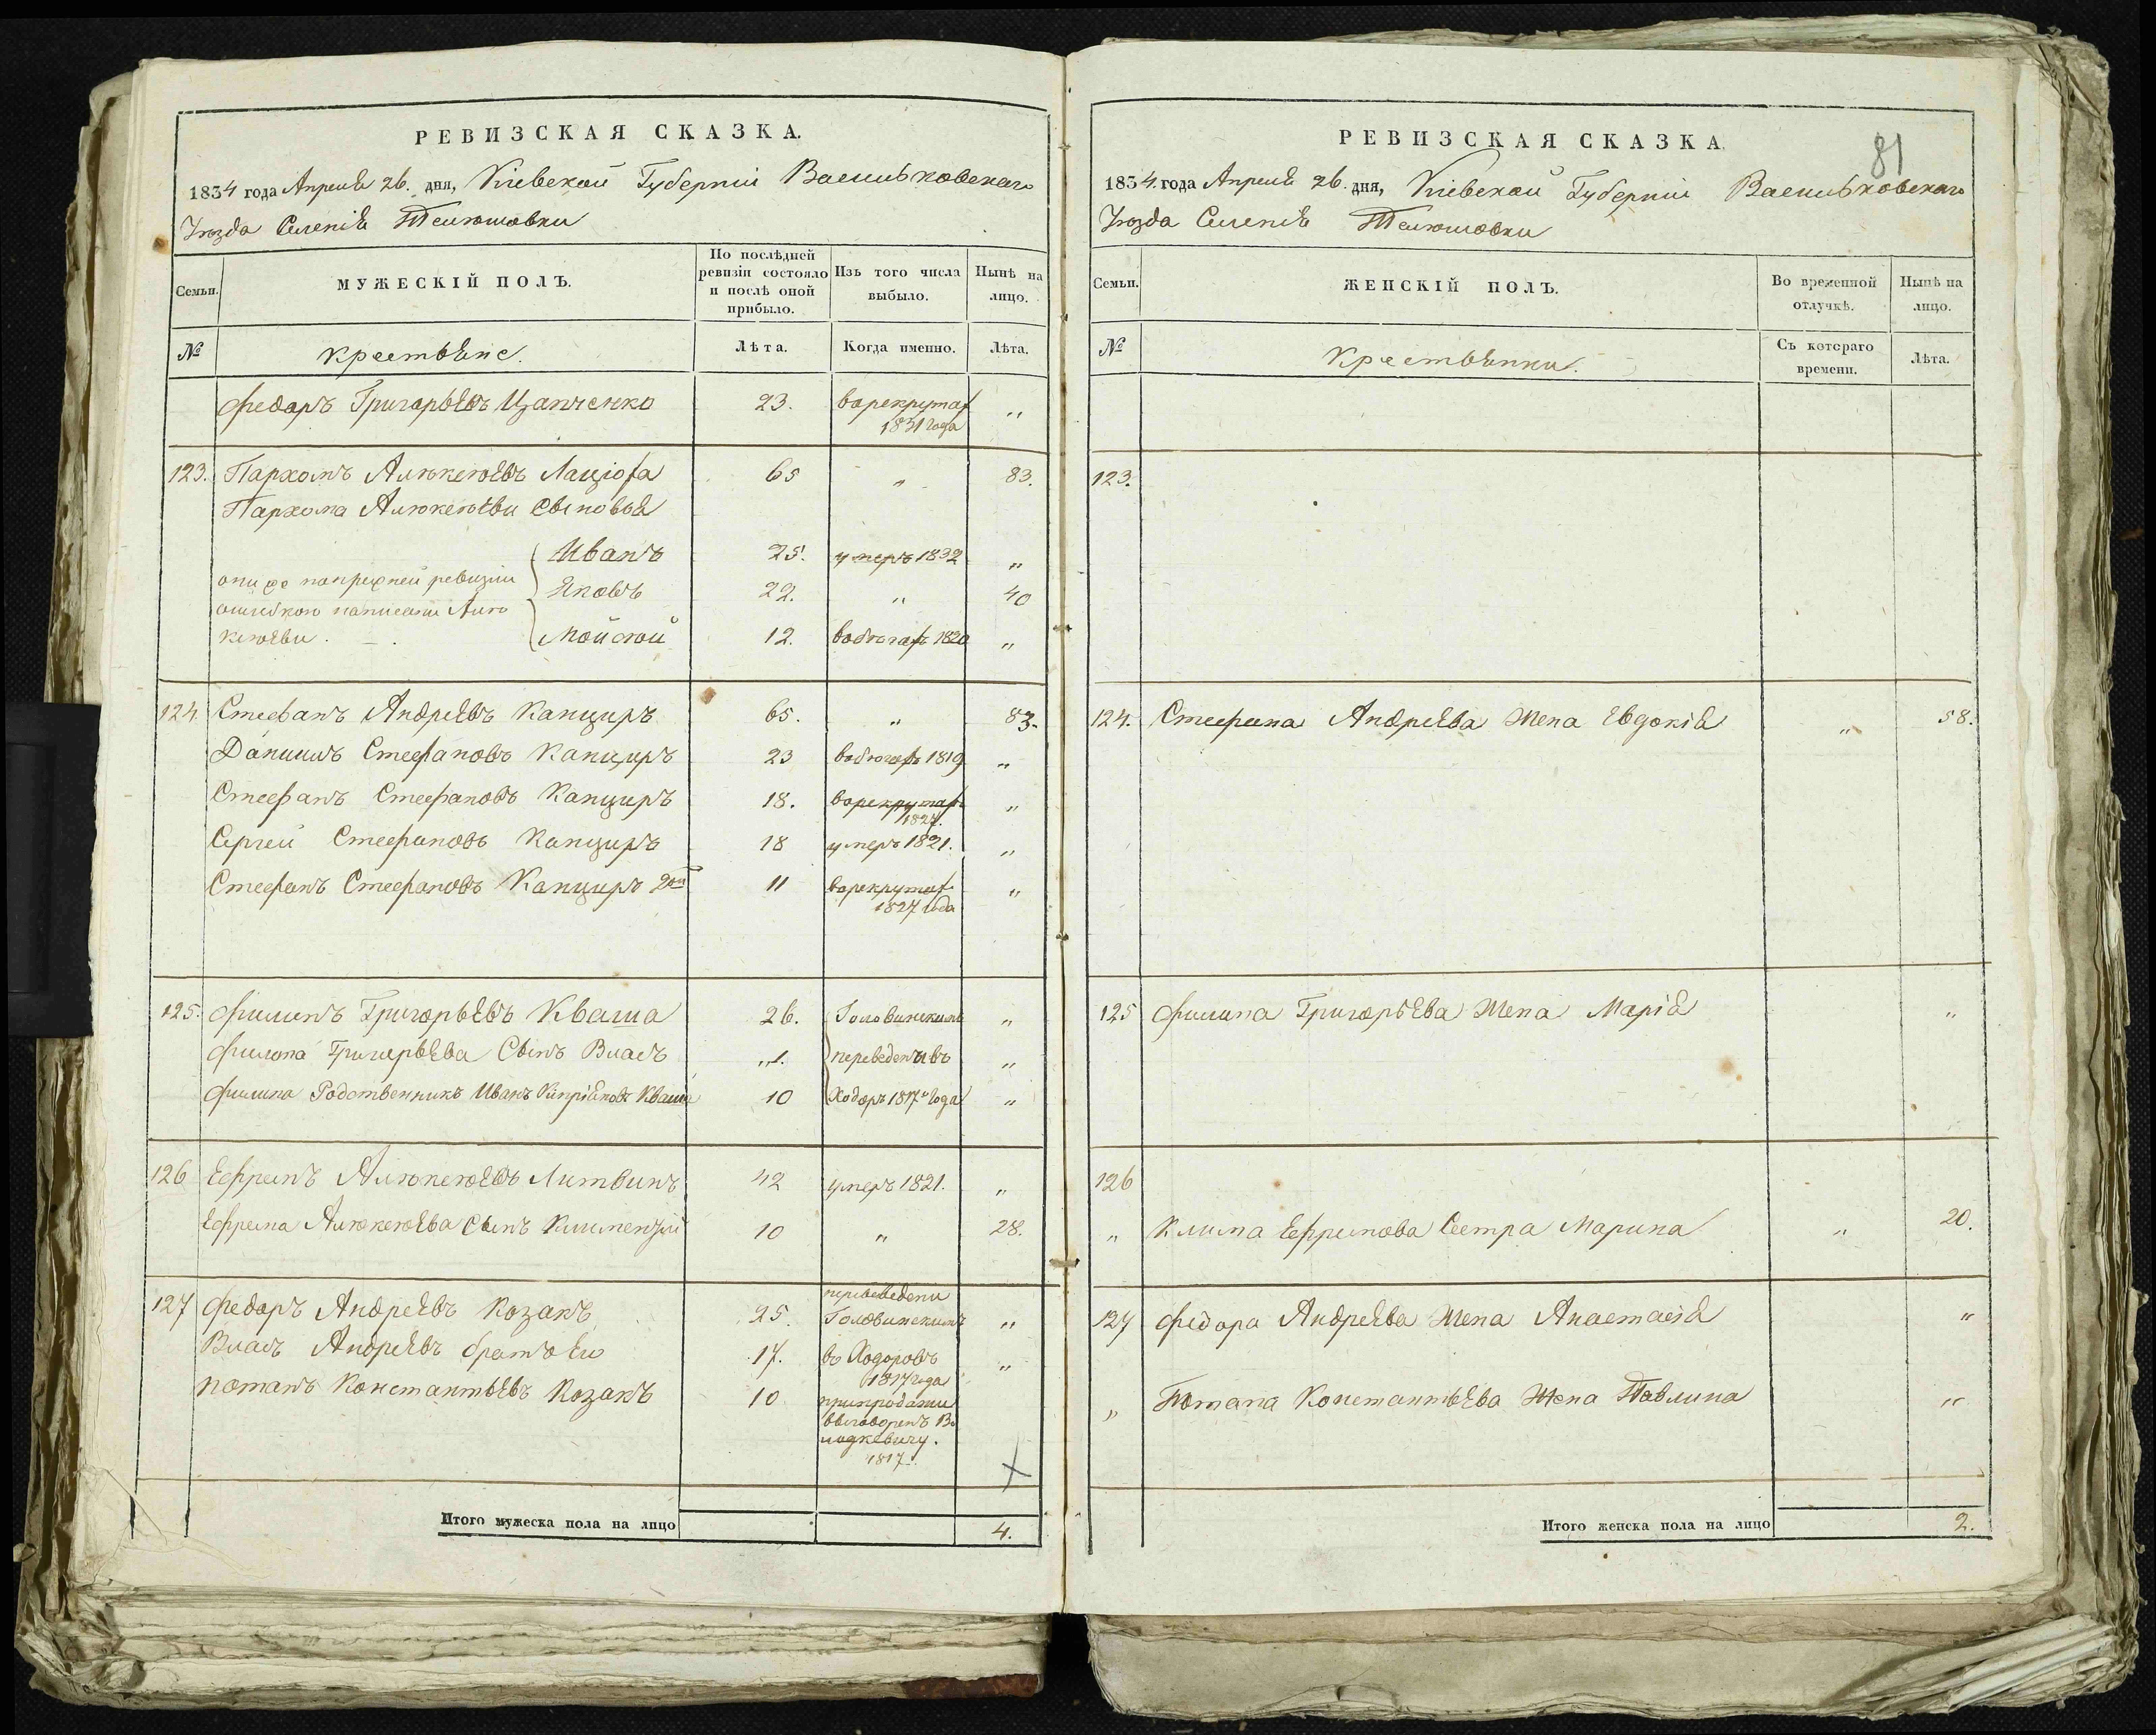 РЕВИЗСКАЯ СКАЗКА.
1834 года Апреля 26. дня, Кіевской Губерніи Васильковскаго
Уезда Селенія Телюшовки
Семьи.
МУЖЕСКІЙ ПОЛЪ.
По послѣдней ревизіи состояло и послѣ оной прибыло.
Изъ того числа выбыло.
Нынѣ на лицо.
№
Крестьяне.
Лѣта.
Когда именно.
Лѣта.
Федоръ Григорьевъ Цапченко 23. в рекрутах „
1831 года
123. Пархомъ Алексеевъ 65 „ 83.
Пархома Алексееви Сыновья
Иванъ 25. умеръ 1832 „
они же попрежней ревизіи
Яковъ 22. „ 40
ошибкою написани Але
ксееви.
Мойсей 12. вобегах 1820 „
124. Стефанъ Андреевъ Канциръ 65. „ 83.
Данилъ Стефановъ Канциръ 23 вобегах 1819 „
Стефанъ Стефановъ Канциръ 18. ворекрутах „
1827.
Сергей Стефановъ Канциръ 18 умеръ 1821. „
Стефанъ Стефановъ Канциръ 2ой 11 ворекрутах „
1827 года
125. Филипъ Григорьевъ Кваша 26. Головинскимъ „
Филипа Григорьева Сынъ Власъ „1. переведены въ „
Филипа Родственникъ Иванъ Кипріяновъ Кваша 10 Ходоръ 1817 года „
126 Ефремъ Алексеевъ Литвинъ 42 умеръ 1821. „
Ефрема Алексеева Сынъ Климентій 10 „ 28.
127 Федоръ Андреевъ Козакъ 25. переведени Головинскимъ „
Власъ Андреевъ братъ Ево 17. въ Ходоровъ „
1817 года
Потапъ Константьевъ Козакъ 10 припродажи
выговоренъ Во
лодкевичу.
1817
Итого мужеска пола на лицо 4.
РЕВИЗСКАЯ СКАЗКА.
81
1834. года Апреля 26. дня, Кіевской Губерніи Васильковскаго
Уезда Селенія Телюшовки
Семьи.
ЖЕНСКІЙ ПОЛЪ.
Во временной отлучкѣ.
Нынѣ на лицо.
№
Крестьянки.
Съ котораго времени.
Лѣта.
123.
124. Стефана Андреева Жена Евдокія „ 58.
125 Филипа Григорьева Жена Марія „
126
„ Клима Ефремова Сестра Марина „ 20.
127 Федора Андреева Жена Анастасія „
„ Потапа Константьева Жена Павлина „
Итого женска пола на лицо 2.